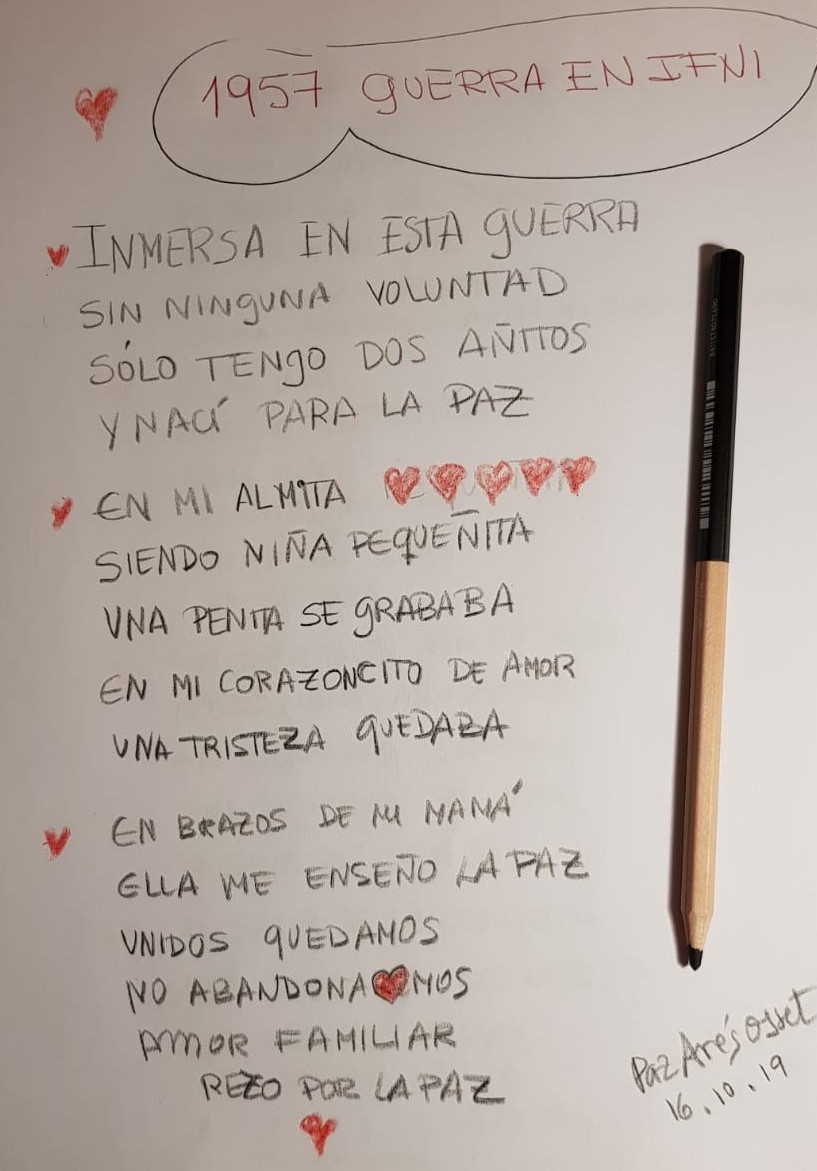 1957 GUERRA EN IFNI
INMERSA EN ESTA GUERRA
SIN NINGUNA VOLUNTAD
SÓLO TENGO DOS AÑITOS
Y NACÍ PARA LA PAZ
EN MI ALMITA
SIENDO NIÑA PEQUEÑITA
UNA PENITA SE GRABABA
EN MI CORAZONCITO DE AMOR
UNA TRISTEZA QUEDABA
EN BRAZOS DE MI MAMÁ
ELLA ME ENSEÑO LA PAZ
UNIDOS QUEDAMOS
NO ABANDONAMOS
AMOR FAMILIAR
REZO POR LA PAZ
Paz Arés Osset
16.10.19